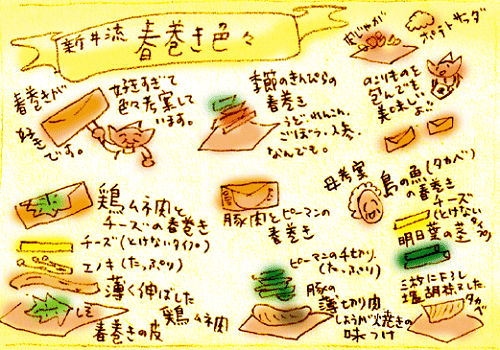 新井流 春巻き色々
春巻きが
好きです。
好きすぎて
色々考案して
います。
季節のきんぴらの
春巻き
うど、れんこん、
ごぼう、人参、
なんでも。
肉じゃが
ポテトサラダ
のこりものを
包んでも
美味しいよ
鶏ムネ肉と
チーズの春巻き
チーズ(とけないタイプ)
エノキ(たっぷり)
薄く伸ばした
鶏ムネ肉
しそ
春巻きの皮
豚肉とピーマンの
春巻き
ピーマンの千切り
(たっぷり)
豚の
薄切り肉
しょうが焼きの
味つけ
母考案
島の魚(タカベ)
の春巻き
チーズ
(とけない
タイプ)
明日葉の茎
三枚に下ろし
塩胡椒した
タカベ